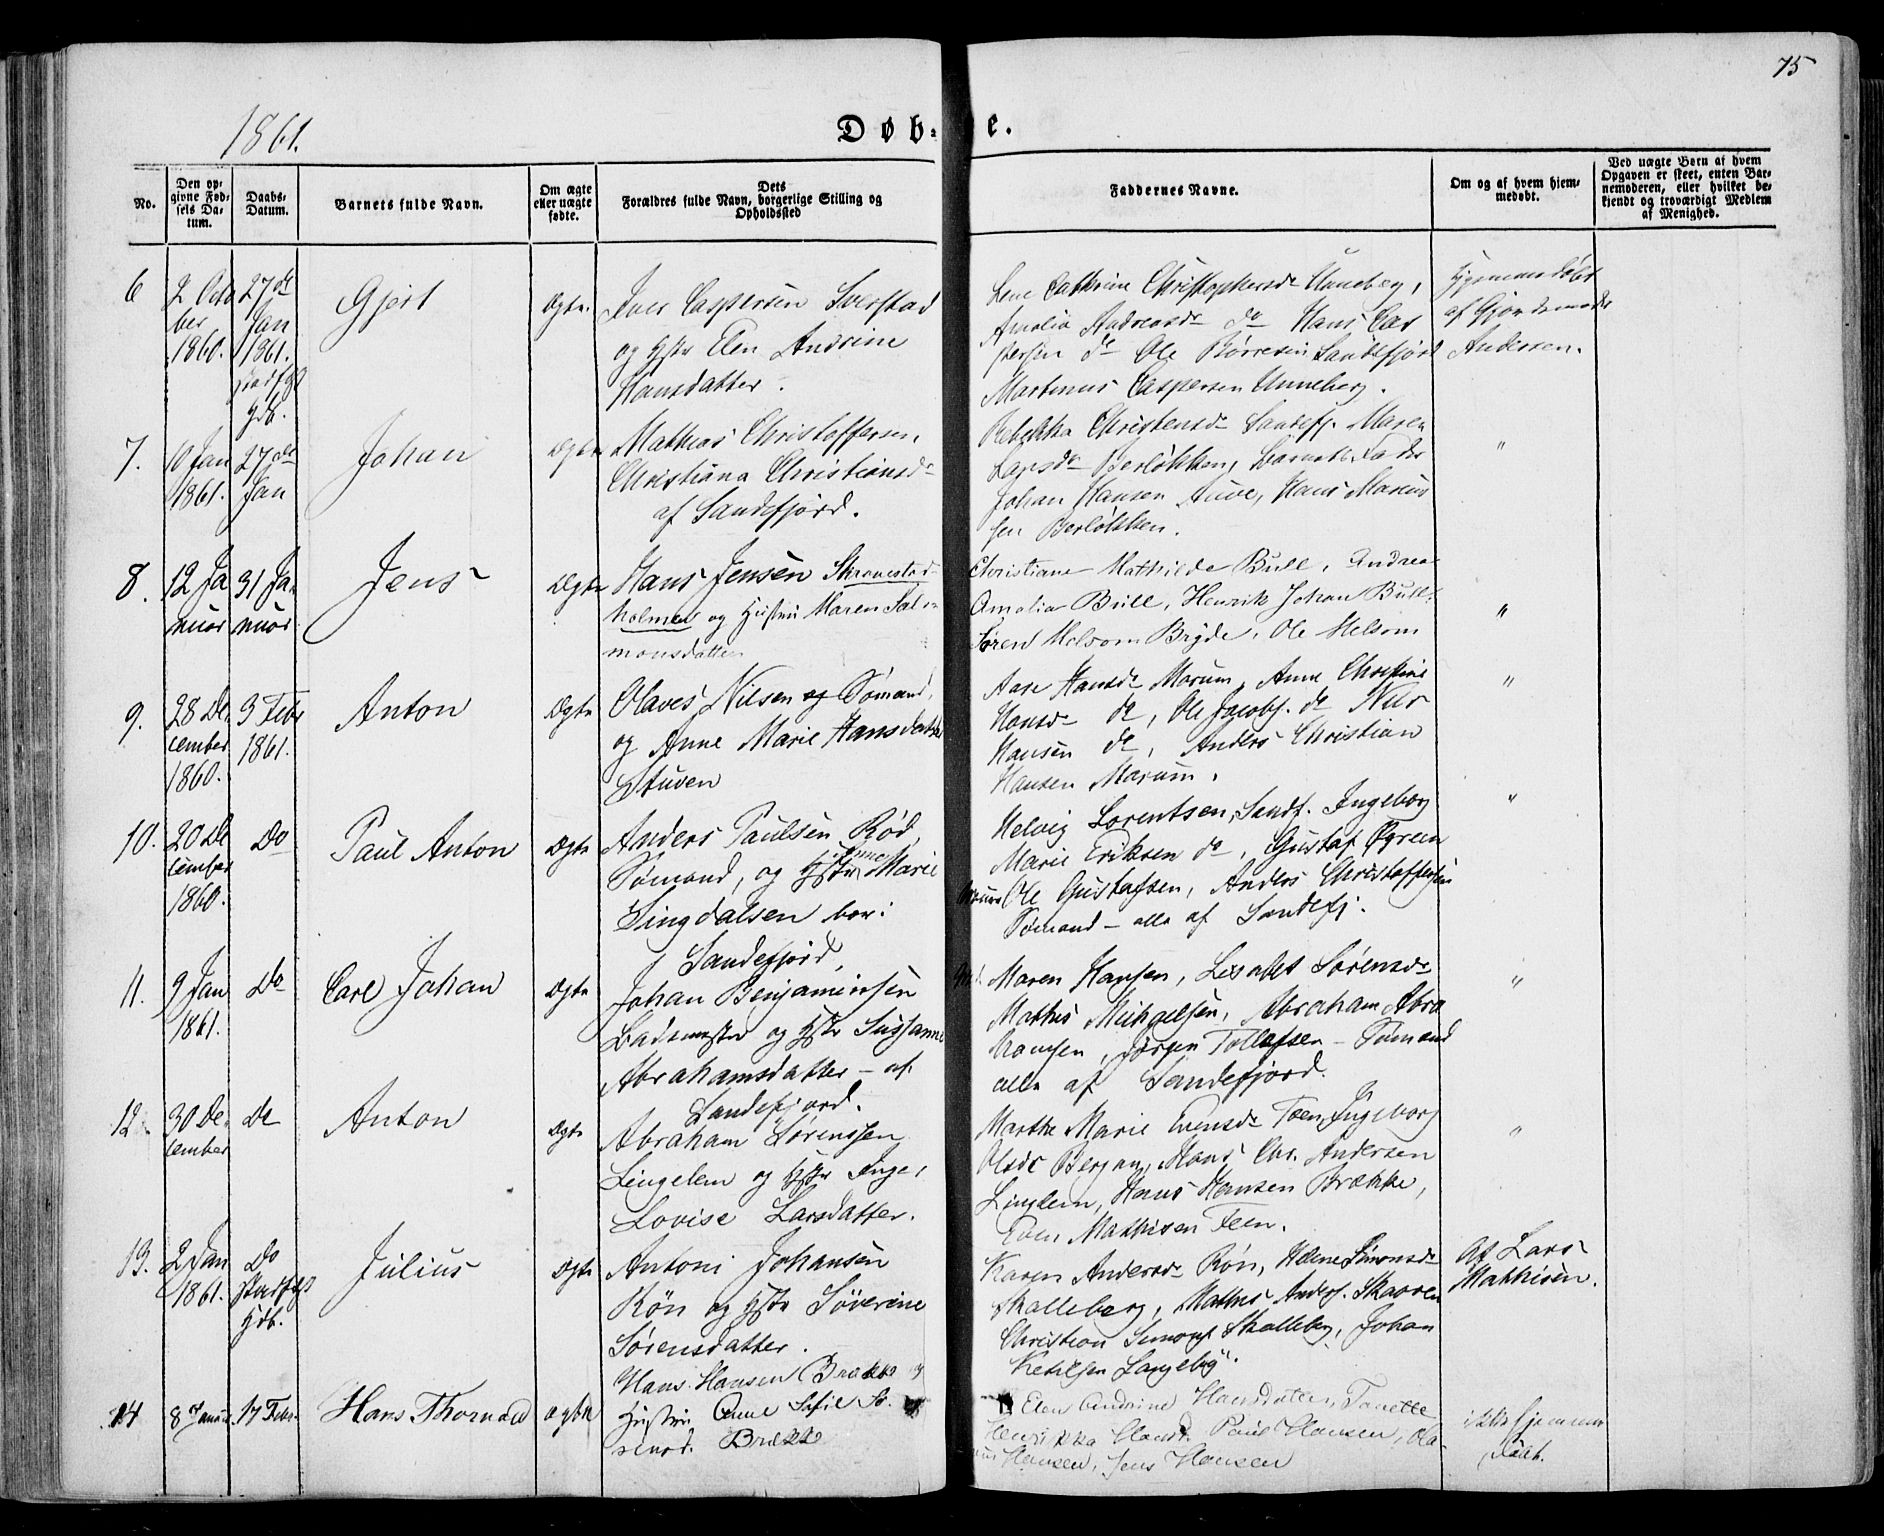 75
1861.
Døb- e.
No.
Den op-
givne Fød-
sels Da-
tum.
Daabs-
Datum.
Barnets fulde Navn.
Om ægte
eller uægte
fødte.
Dets
Forældres fulde Navn, borgerlige Stilling og
Opholdssted
Faddernes Navne.
Om og af hvem hjem-
medøbt.
Ved uægte Børn af hvem
Opgaven er skeet, enten Bar-
nemoderen, eller hvilket be-
kjendt og troværdigt Medlem
af Menighed.
6
2 Octo
ber
1860.
27de
Jan
1861.
stadfgs
hjdb.
Gjert
Ægte
Iver Caspersen Sverstad
og Hstr Elen Andrine
Hansdatter.
Lene Cathrine Christophersdr Unneberg,
Amalia Andreasdr do Hans Cas
persen do Ole Børresen Sandefjord
Martinus Caspersen Unneberg.
Hjemmedøbt
af Gjordemoder
Andersen.
7.
10 Jan
1861.
27de
Jan
Johan
Ægte
Mathias Christoffersen,
Christiana Christiansdr
af Sandefjord.
Rebekka Christensdr Sandefj. Maren
Larsdr Berløkken, Barnets Fader
Johan Hansen Auve, Hans Marcus
sen Berløkken.
"
8.
12 Ja
nuar
31 Ja-
nuar
Jens
Ægte
Hans Jensen Skravestad
holmen og Hustru Maren Salo
monsdatter
Christiane Mathilde Bull, Andrea
Amalia Bull, Henrik Johan Bull,
Søren Melsom Bryde, Ole Melsom
"
9.
28 De
cember
1860.
3 Febr
1861.
Anton
Ægte
Olaves Nilsen og Sømand,
og Anne Marie Hansdatter
Stuven
Aase Hansdr Marum, Anne Christine
Hansdr do, Ole Jacobs. do Nils
Hansen do, Anders Christian
Hansen Marum.
"
10.
20 De
cember
1860.
Do
Paul Anton
Ægte
Anders Paulsen Rød,
Sømand, og Hstr Anne Marie
Lingdalsen bor i
Sandefjord,
Helvig Lorentsen, Sandf. Ingeborg
Marie Eriksen do, Gustaf Øgreen
Ole Gustafsen, Anders Christoffersen
Sømand - alle af Sandefj.
"
11.
9 Jan
1861.
Do
Carl Johan
Ægte
Johan Benjaminsen
Bademester og Hstr Sussanne
Abrahamsdatter - af
Sandefjord.
Maren Hansen, Lisabet Sørensdr
Mathis Michaelsen, Abraham Abra
hamsen, Jørgen Tollefsen - Sømand
alle af Sandefjord.
"
12.
30 De-
cember
Do
Anton
Ægte
Abraham Sørenssen
Lingelem og Hstr Inge
Lovise Larsdatter.
Marthe Marie Evensdr Foen, Ingeborg
Olsdr Bergan, Hans Chr. Andersen
Lingelem, Hans Hansen Brække,
Even Mathisen Feen.
"
13.
2 Jan
1861.
Do
Stadfgs
hjdb.
Julius
Ægte
Antoni Johansen
Røn og Hstr Severine
Sørensdatter.
Karen Andersdr Røn, Helene Simonsdr
Skalleberg, Mathis Anders. Skaaren
Christian Simons Skalleberg, Johan
Ketilsen Langeby.
Af Lars
Mathisen.
14
8 Januar
17 Febr.
Hans Thorvald
ægte
Hans Hansen Brække og
Hustru Anne Sofie So
rensd. Brække
Elen Andrine Hansdatter, Tanette
Henrikka Clausd. Paul Hansen, Ola
us Hansen, Jens Hansen
ikke hjemme
døbt.